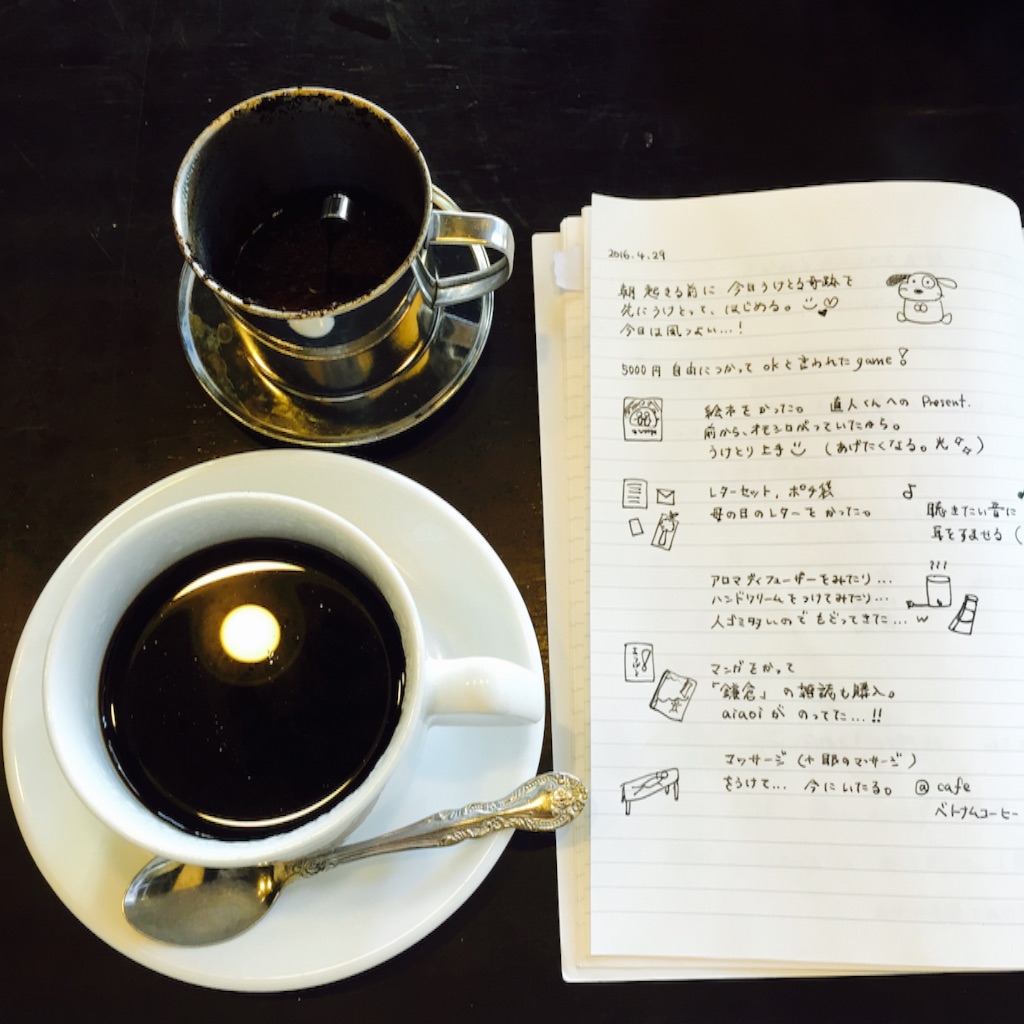 2016.4.29
朝 起きる前に 今日うけとる奇跡を
先にうけとって、はじめる。
今日は風つよい…!
5000円 自由につかって okと言われた game!
絵本をかった。 直人くんへの Present.
前から、オモシロがっていたから。
うけとり上手 (あげたくなる。光)
レターセット, ポチ袋
母の日のレターをかった。
聴きたい音に
耳をすませる (
アロマディフューザーをみたり...
ハンドクリームをつけてみたり...
人ゴミ多いので もどってきた... w
マンガをかって
「鎌倉」の雑誌も購入。
aiaoiが のってた...!!
マッサージ (+耳のマッサージ)
をうけて... 今にいたる。 @ cafe
ベトナムコーヒー